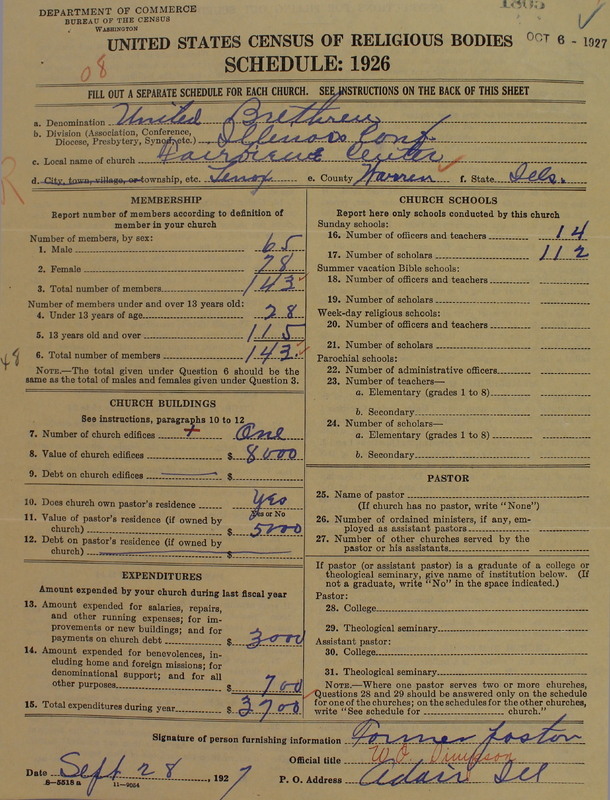 DEPARTMENT OF COMMERCE
BUREAU OF THE CENSUS
WASHINGTON
OCT 6 - 1927
UNITED STATES CENSUS OF RELIGIOUS BODIES
SCHEDULE: 1926
08
FILL OUT A SEPARATE SCHEDULE FOR EACH CHURCH. SEE INSTRUCTIONS ON THE BACK OF THIS SHEET
a. Denomination United Brethren
b. Division (Association, Conference, Diocese, Presbytery, Synod, etc.) Illenois Conf
c. Local name of church Fairview Center
d. City, town, village, or township, etc. Lenox e. County Warren f. State Ills.
MEMBERSHIP
Report number of members according to definition of
member in your church
Number of members, by sex:
1. Male 65
2. Female 78
3. Total number of members 143
Number of members under and over 13 years old:
4. Under 13 years of age 28
5. 13 years old and over 115
6. Total number of members 143
48
NOTE.—The total given under Question 6 should be
same as the total of males and females given under Question 3.
CHURCH BUILDINGS
See instructions, paragraphs 10 to 12
7. Number of church edifices One
8. Value of church edifices $ 8000
9. Debt on church edifices $
10. Does church own pastor's residence Yes
Yes or No
11. Value of pastor's residence (if owned by
church) $ 5000
12. Debt on pastor's residence (if owned by
church) $
EXPENDITURES
Amount expended by your church during last fiscal year
13. Amount expended for salaries, repairs,
and other running expenses; for im-
provements or new buildings; and for
payments on church debt $ 3000
14. Amount expended for benevolences, in-
cluding home and foreign missions; for
denominational support; and for all
other purposes $ 700
15. Total expenditures during year $ 3700
CHURCH SCHOOLS
Report here only schools conducted by this church
Sunday schools:
16. Number of officers and teachers 14
17. Number of scholars 112
Summer vacation Bible schools:
18. Number of officers and teachers
19. Number of scholars
Week-day religious schools:
20. Number of officers and teachers
21. Number of scholars
Parochial schools:
22. Number of administrative officers
23. Number of teachers—
a. Elementary (grades 1 to 8)
b. Secondary
24. Number of scholars—
a. Elementary (grades 1 to 8)
b. Secondary
PASTOR
25. Name of pastor
(If church has no pastor, write "None")
26. Number of ordained ministers, if any, em-
ployed as assistant pastors
27. Number of other churches served by the
pastor or his assistants
If pastor (or assistant pastor) is a graduate of a college or
theological seminary, give name of institution below. (If
not a graduate, write "No" in the space indicated.)
Pastor:
28. College
29. Theological seminary
Assistant pastor:
30. College
31. Theological seminary
NOTE.—Where one pastor serves two or more churches,
Questions 28 and 29 should be answered only on the schedule
for one of the churches; on the schedules for the other churches,
write "See schedule for ________ church."
Signature of person furnishing information Former Pastor
Official title
Date Sept 28, 1927 P. O. Address Adair Ill
8-5518 a 11-9054